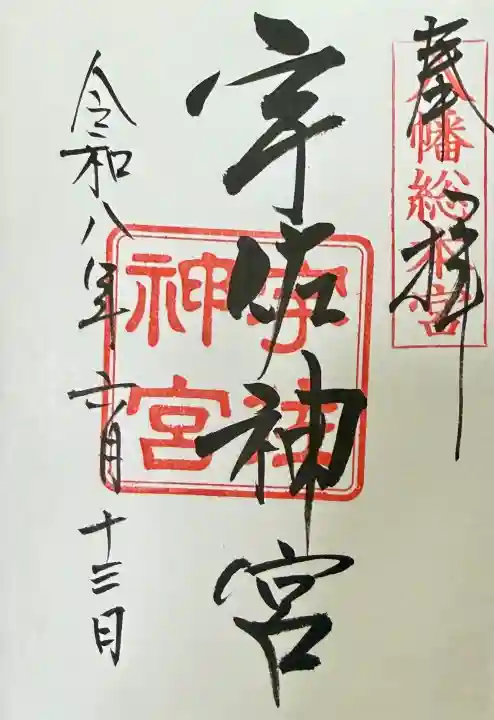 奉拝
八幡総本宮
宇佐神宮
宇佐
神宮
令和八年六月十三日